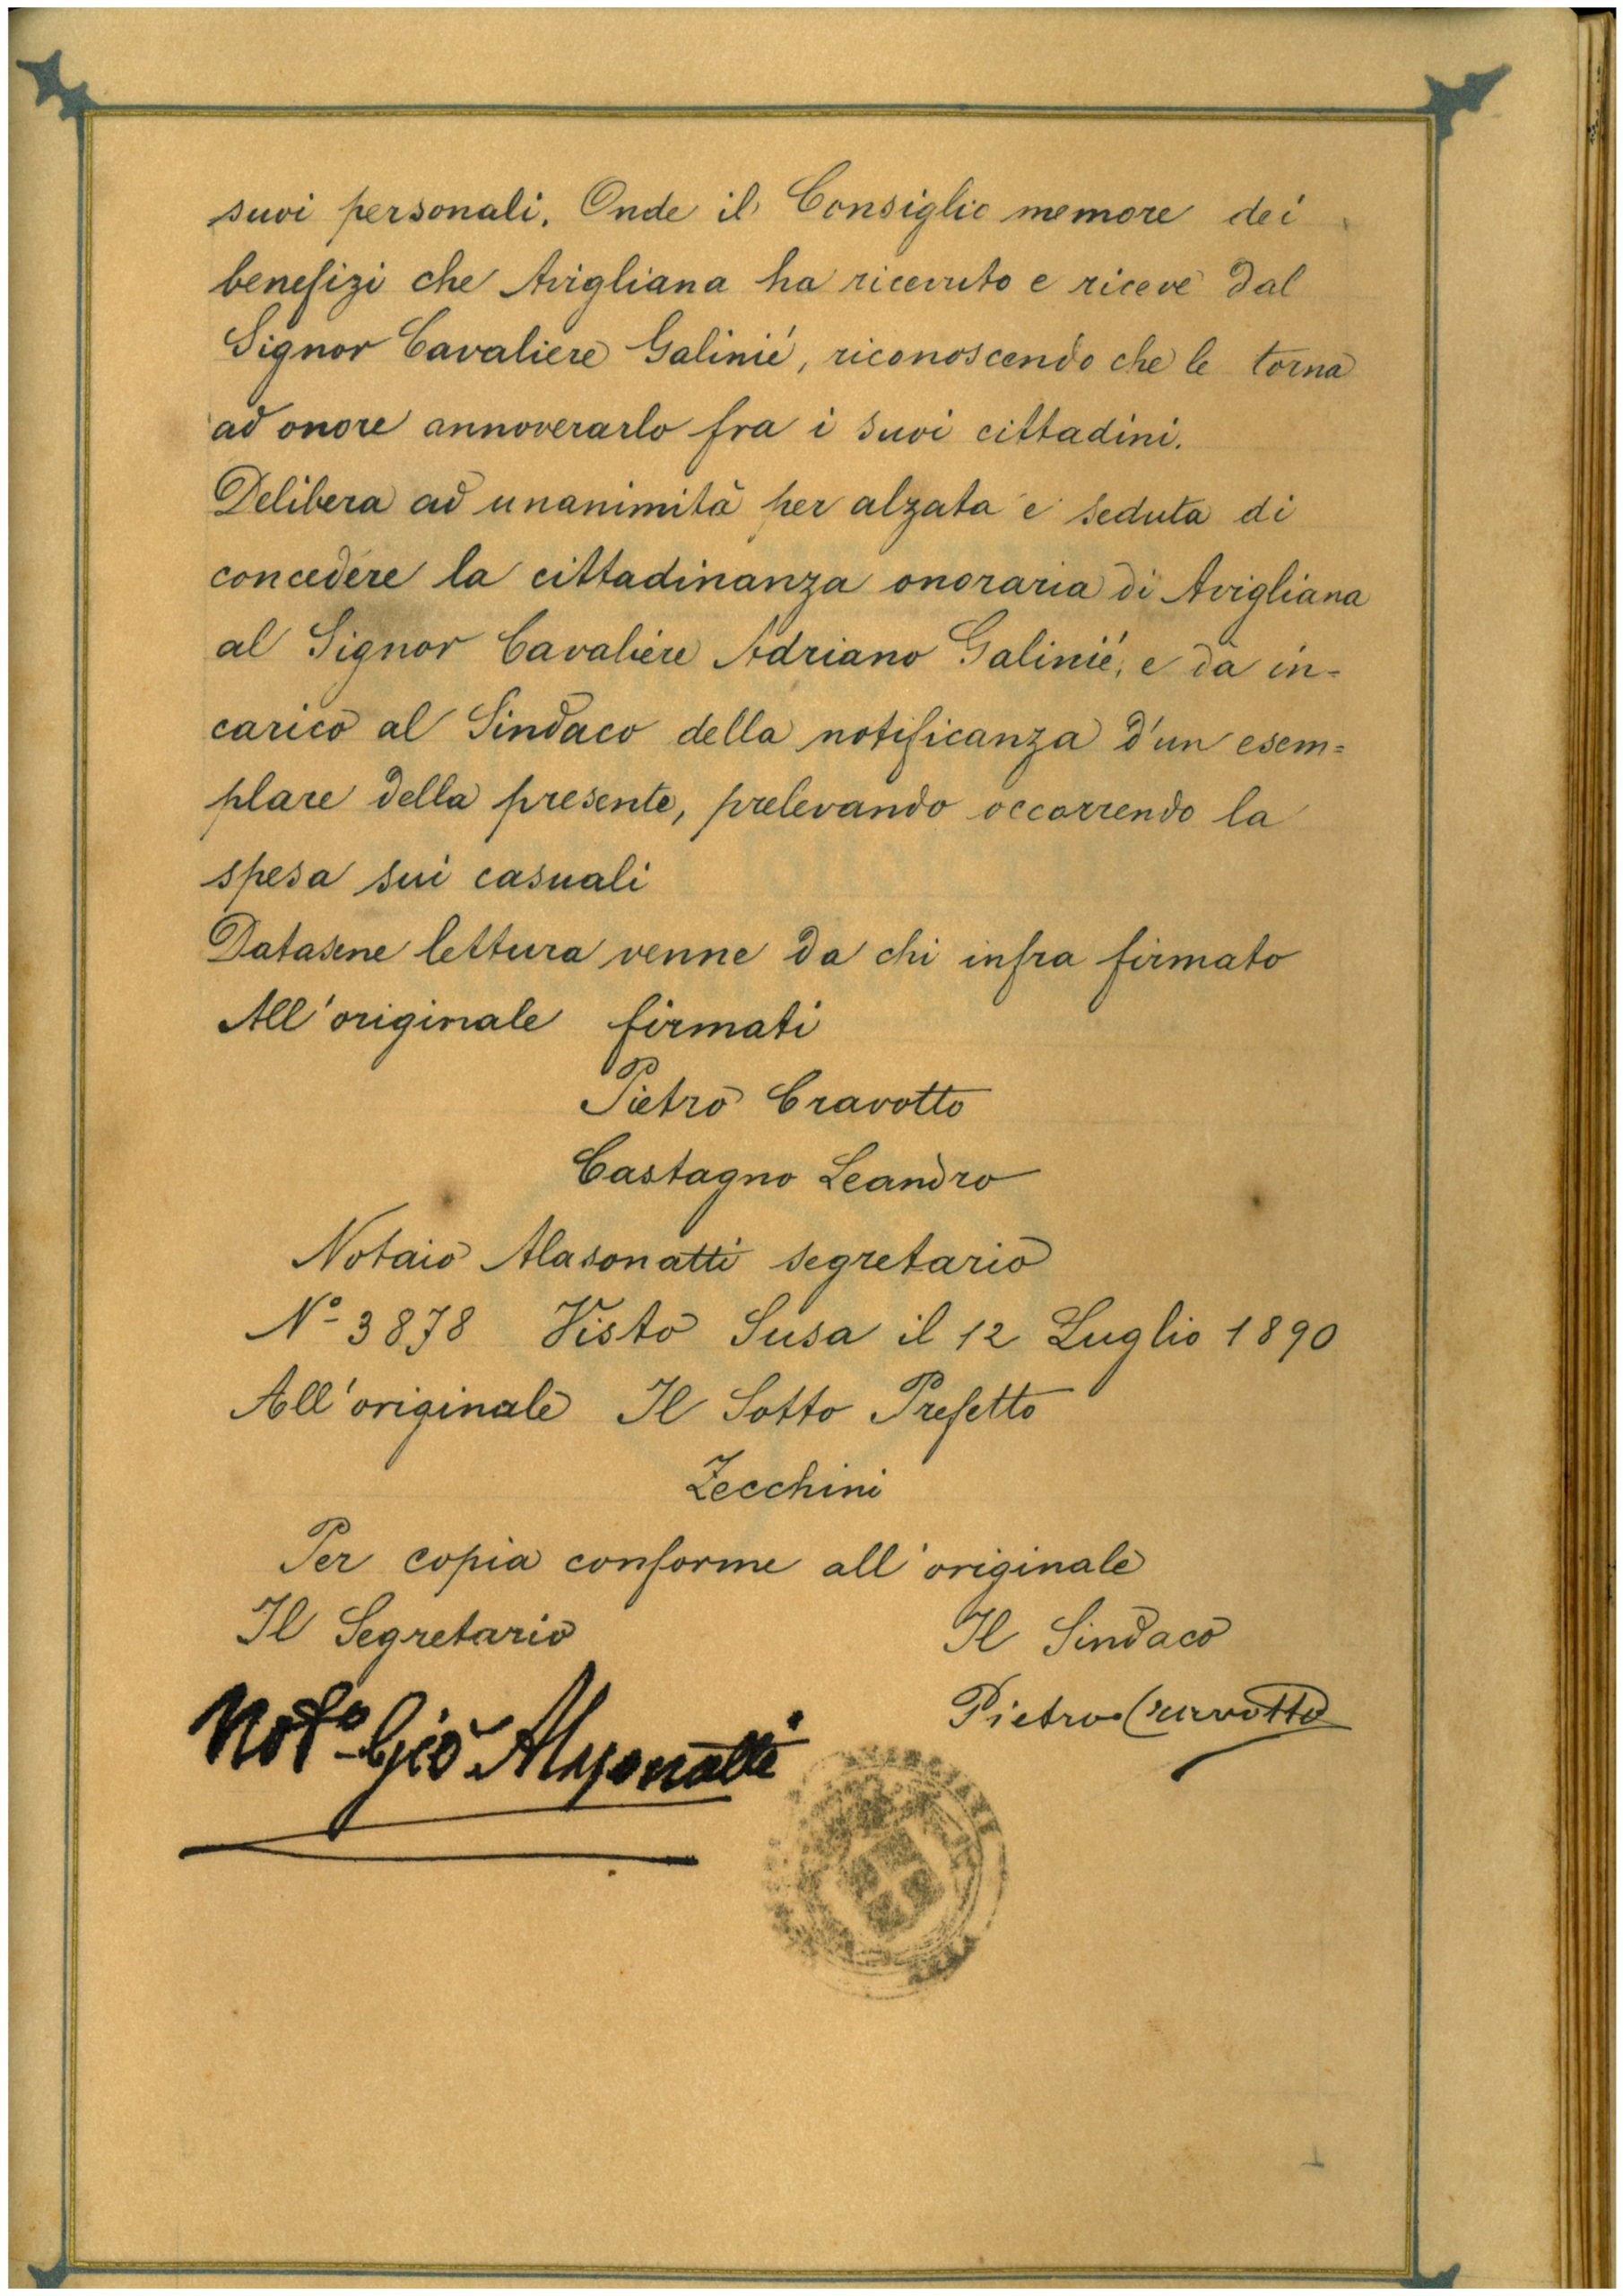 suoi personali. Onde il Consiglio memore dei
benefizi che Avigliana ha ricevuto e riceve dal
Signor Cavaliere Galinié, riconoscendo che le torna
ad onore annoverarlo fra i suoi cittadini.
Delibera ad unanimità per alzata e seduta di
concedere la cittadinanza onoraria di Avigliana
al Signor Cavaliere Adriano Galinié, e dà in=
carico al Sindaco della notificanza d'un esem=
plare della presente, prelevando occorrendo la
spesa sui casuali
Datasene lettura venne da chi infra firmato
All'originale firmati
Pietro Cravotto
Castagno Leandro
Notaio Alasonatti segretario
N° 3878 Visto Susa il 12 Luglio 1890
All'originale Il Sotto Prefetto
Zecchini
Per copia conforme all'originale
Il Segretario Il Sindaco
Not° Gio Alasonatti Pietro Cravotto